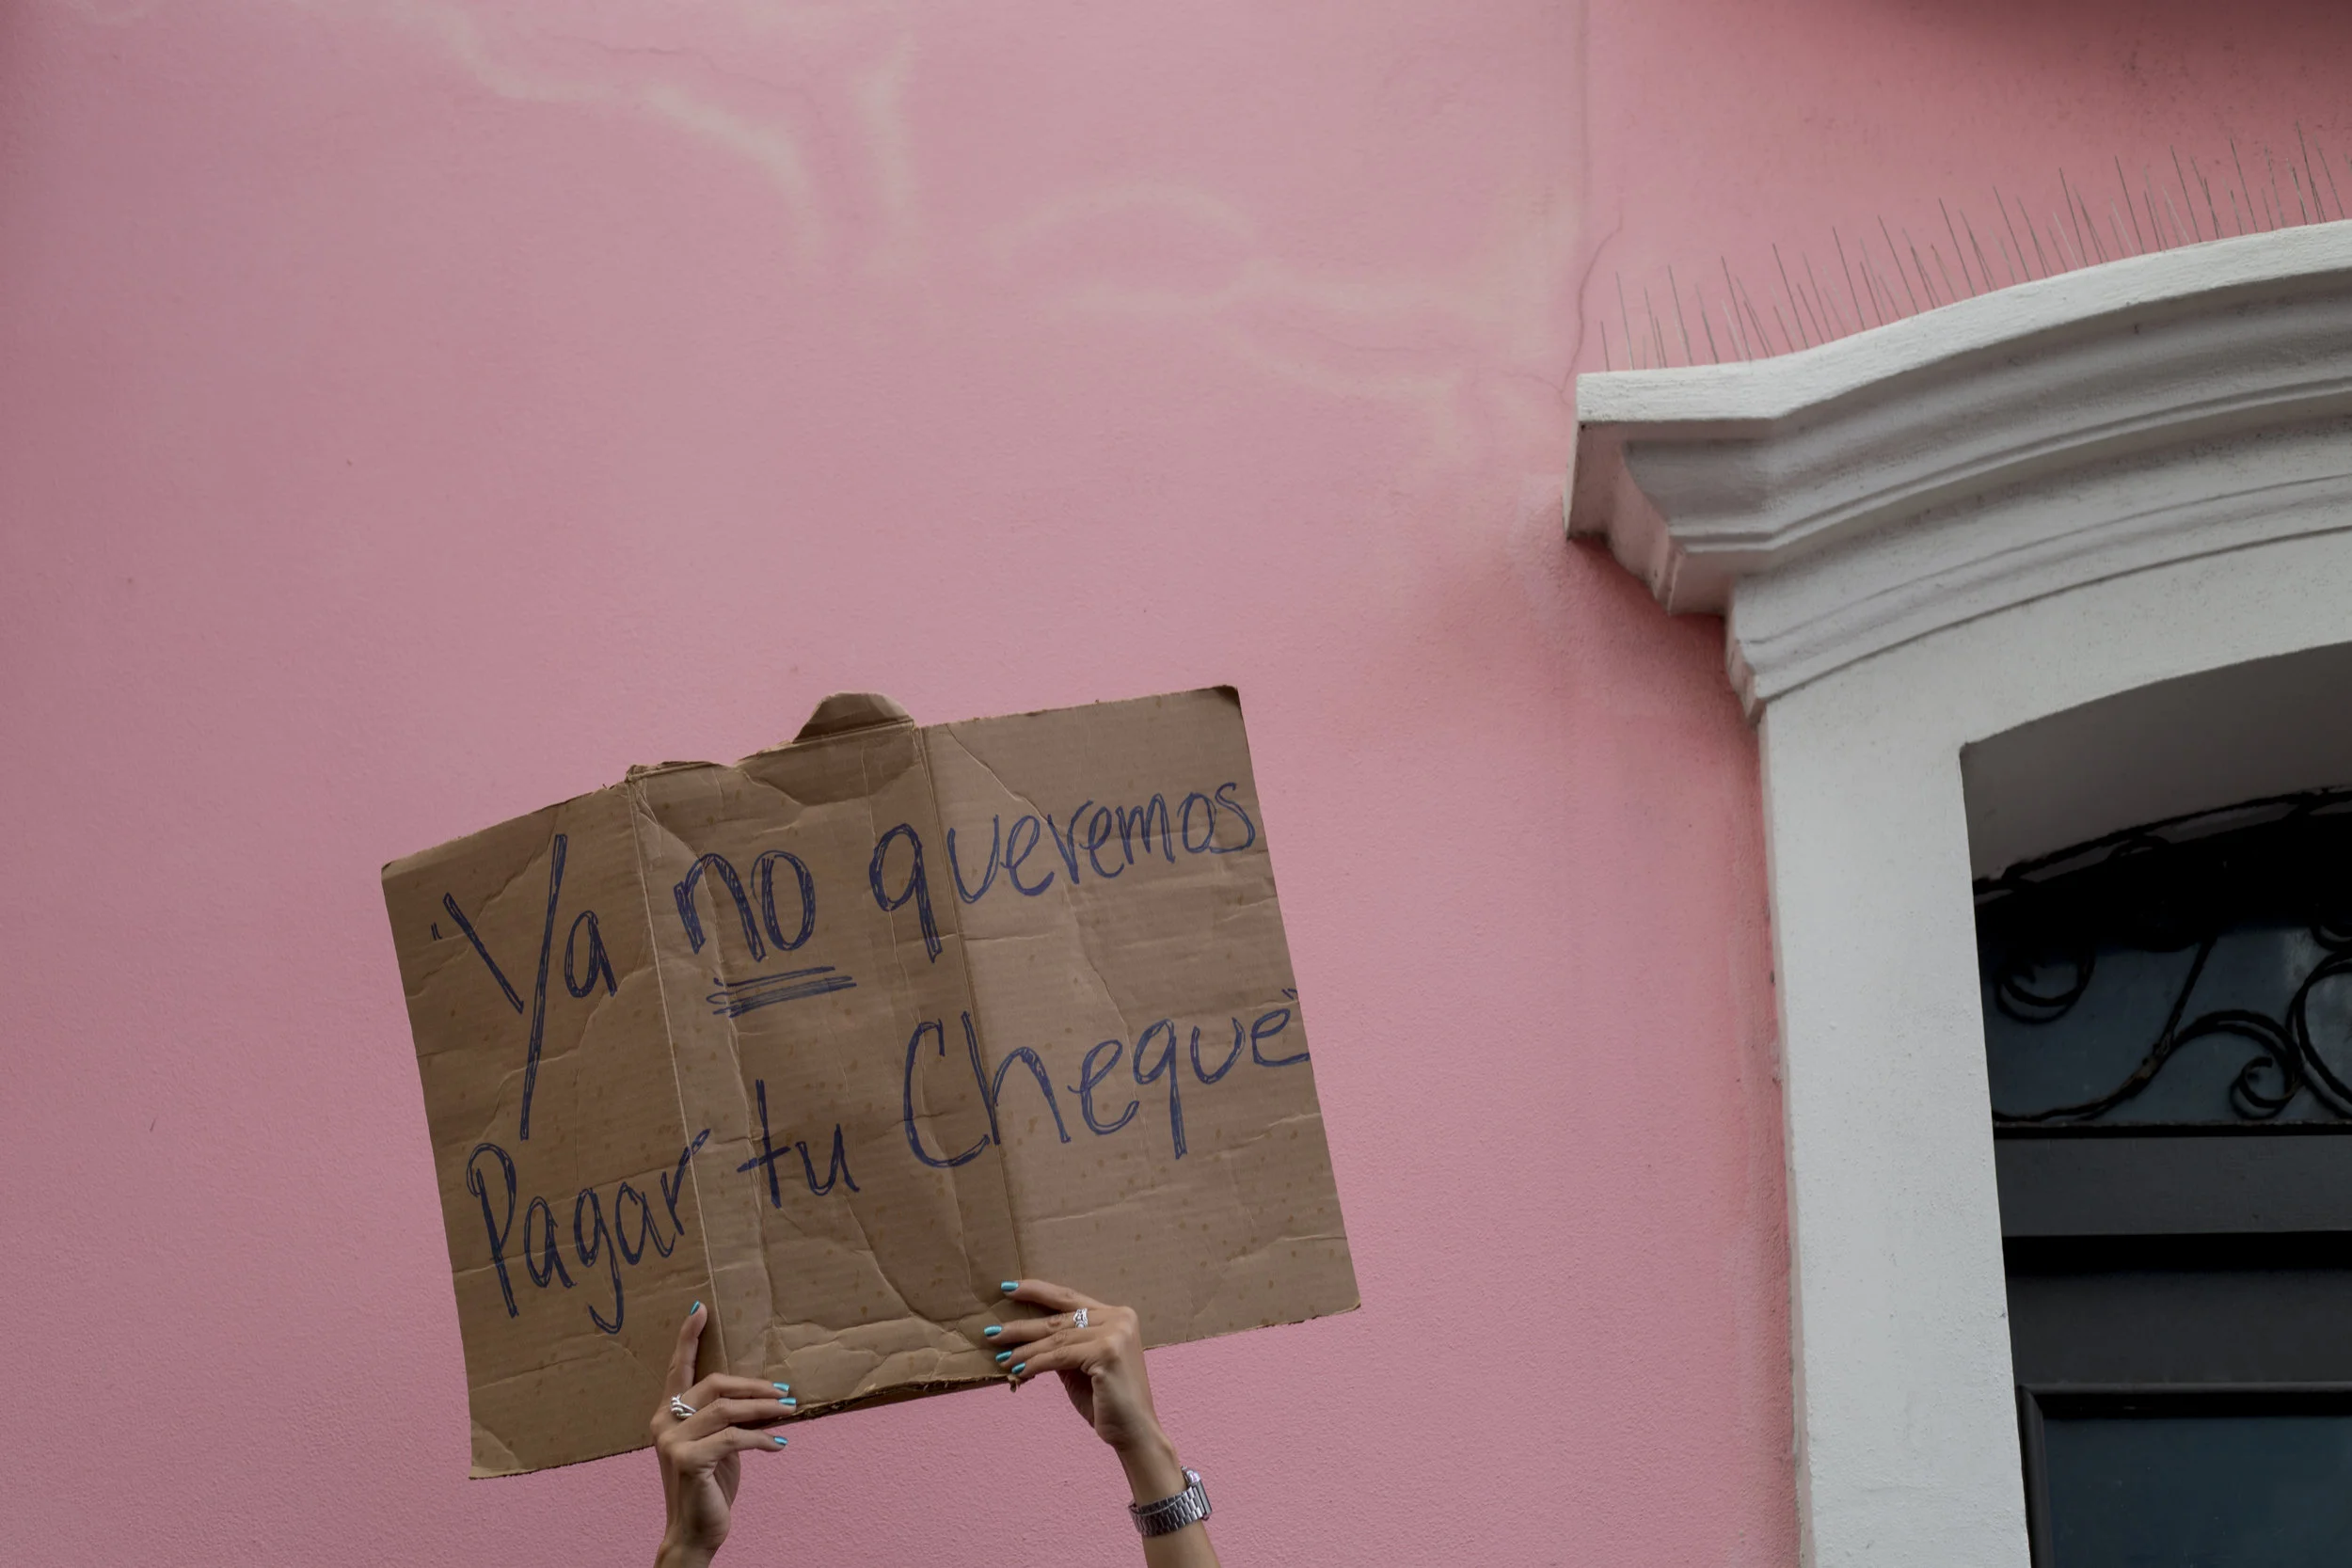 "Ya no queremos
Pagar tu Cheque"